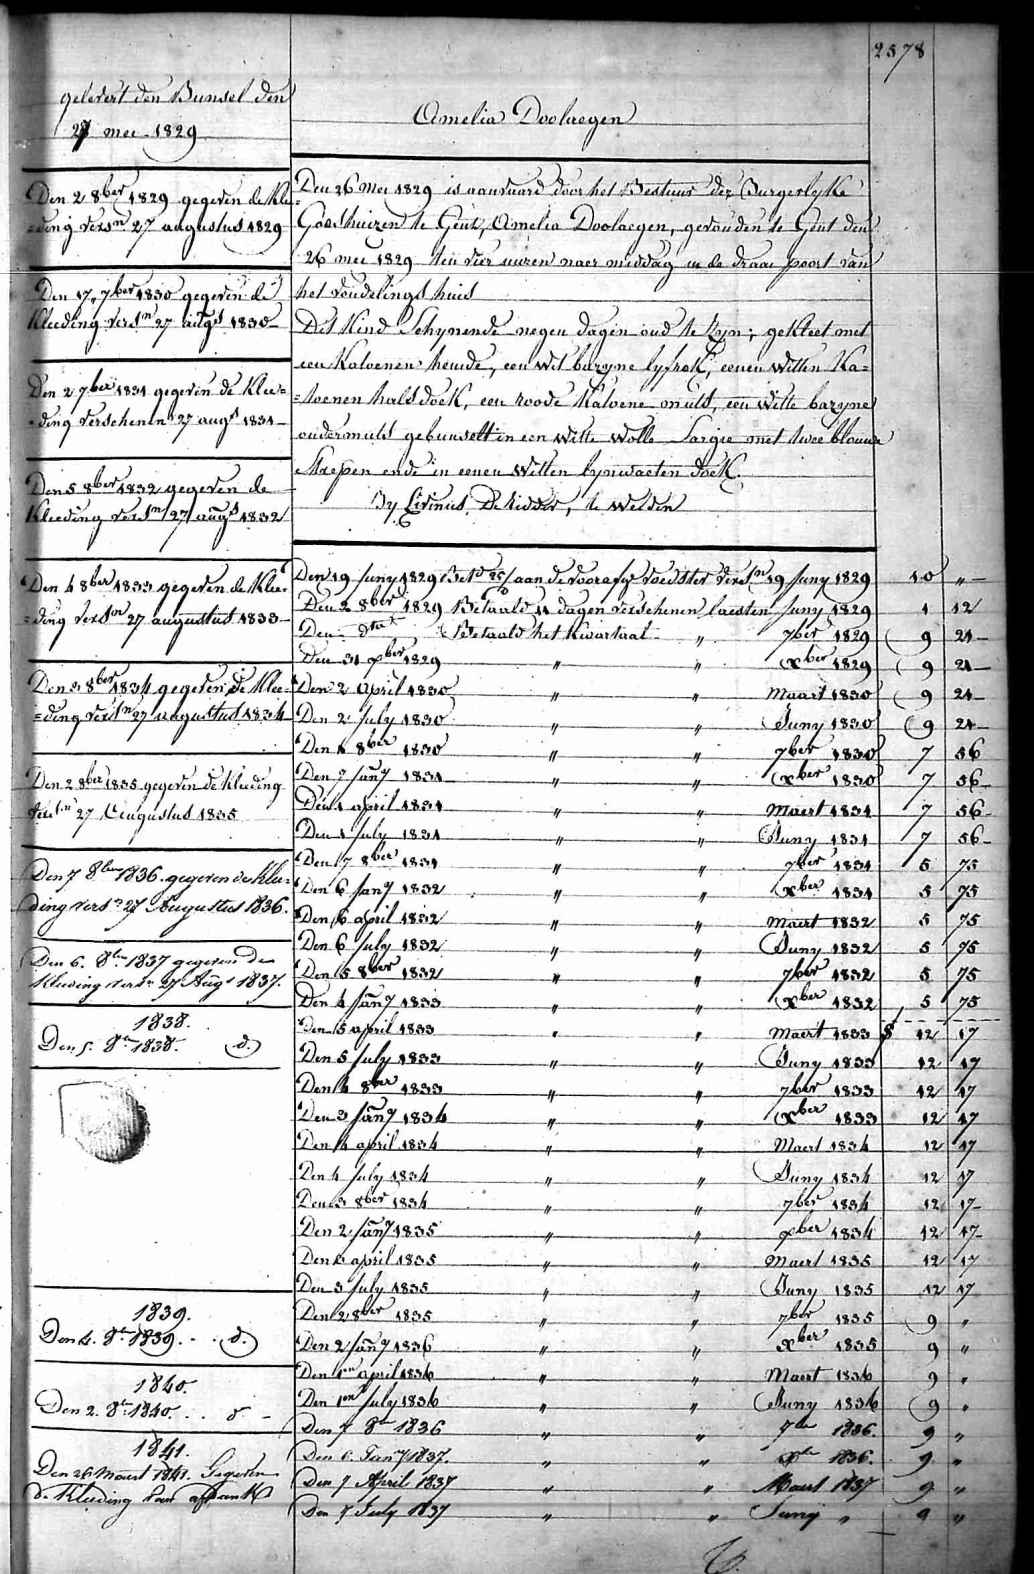 2578
gelevert den Bunsel den
27 mei 1829
Amelia Doolaegen
Den 2 8ber 1829 gegeven de Klee=
=ding versn 27 augustus 1829
Den 17 7ber 1830 gegeven de
Kleeding versn 27 augs 1830
Den 2 7ber 1831 gegeven de Klee=
=ding verschenen 27 augs 1831
Den 5 8ber 1832 gegeven de
Kleeding versn 27 augs 1832
Den 4 8ber 1833 gegeven de Klee=
=ding versn 27 augustus 1833
Den 3 8ber 1834 gegeven de Klee=
=ding versn 27 augustus 1834
Den 2 8ber 1835 gegeven de kleeding
versn 27 Augustus 1835
Den 7 8ber 1836. gegeven de Klee=
ding versn 27 Augustus 1836.
Den 6. 8br 1837 gegeven de
Kleeding versn 27 Augs 1837.
1838.
Den 5. 8br 1838. d.
1839.
Den 4. 8br 1839. . . d.
1840.
Den 2. 8br 1840. . . d -
1841.
Den 26 Maert 1841. Gegeven
de Kleeding van afdank
Den 26 Mei 1829 is aanvaard door het Bestuur der Burgerlyke
Godshuizen te Gent, Amelia Doolaegen, gevonden te Gent den
26 mei 1829 ten vier uuren naer middag in de draai poort van
het vondelings huis
Dit Kind Schynende negen dagen oud te zyn; gekleet met
een Katoenen hemde, een wit bazyne lyfrok, eenen witten Ka=
=toenen halsdoek, een roode Katoene muts, een witte bazyne
ondermuts gebunselt in een witte wolle Sargie met twee blauwe
strepen ende in eenen witten lynwaeten doek.
By Livinus De Ridder, te Welden
Den 19 Juny 1829 Betd aan de voorafg voedster versn 19 Juny 1829 10 "
Den 2 8ber 1829 Betaald 11 dagen verschenen laesten Juny 1829 1 12
Den dito Betaald het Kwartaal " 7ber 1829 9 21
Den 31 xber 1829 " " xber 1829 9 21
Den 2 April 1830 " " Maart 1830 9 21
Den 2 July 1830 " " Juny 1830 9 21
Den 1 8ber 1830 " " 7ber 1830 7 56
Den 7 Jany 1831 " " xber 1830 7 56
Den 1 april 1831 " " Maert 1831 7 56
Den 1 July 1831 " " Juny 1831 7 56
Den 7 8ber 1831 " " 7ber 1831 5 75
Den 6 Jany 1832 " " xber 1831 5 75
Den 6 april 1832 " " Maert 1832 5 75
Den 6 July 1832 " " Juny 1832 5 75
Den 5 8ber 1832 " " 7ber 1832 5 75
Den 4 Jany 1833 " " xber 1832 5 75
Den 5 april 1833 " " Maert 1833 12 17
Den 5 July 1833 " " Juny 1833 12 17
Den 4 8ber 1833 " " 7ber 1833 12 17
Den 3 Jany 1834 " " xber 1833 12 17
Den 4 april 1834 " " Maert 1834 12 17
Den 4 July 1834 " " Juny 1834 12 17
Den 3 8ber 1834 " " 7ber 1834 12 17
Den 2 Jany 1835 " " xber 1834 12 17
Den 2 april 1835 " " Maert 1835 12 17
Den 3 July 1835 " " Juny 1835 12 17
Den 2 8ber 1835 " " 7ber 1835 9 "
Den 2 Jany 1836 " " xber 1835 9 "
Den 1en april 1836 " " Maert 1836 9 "
Den 1en July 1836 " " Juny 1836 9 "
Den 7 8br 1836 " " 7br 1836. 9 "
Den 6 Jany 1837. " " xbr 1836. 9 "
Den 7 April 1837 " " Maert 1837 9 "
Den 7 July 1837 " " Juny " 9 "